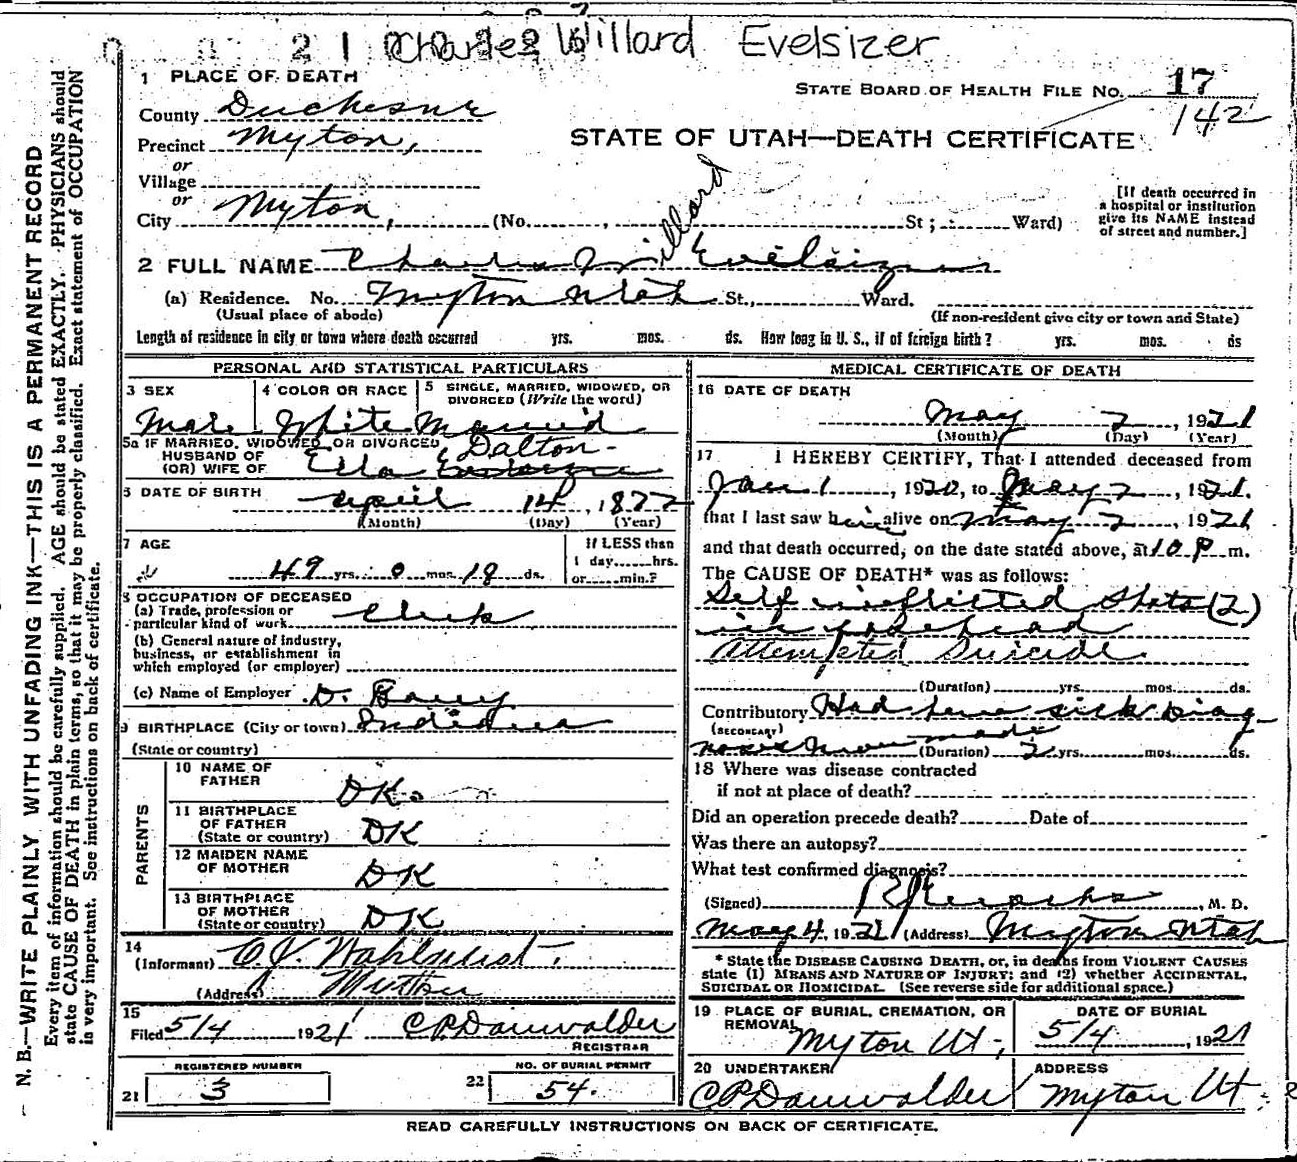 21 Charles Willard Evelsizer
1 PLACE OF DEATH
STATE BOARD OF HEALTH FILE NO. 17
142
County Duchesne
STATE OF UTAH—DEATH CERTIFICATE
Precinct Myton,
or
Village
or
City Myton, (No. , St; Ward)
[If death occurred in a hospital or institution give its NAME instead of street and number.]
2 FULL NAME Charles Willard Evelsizer
(a) Residence. No. Myton Utah St., Ward.
(Usual place of abode) (If non-resident give city or town and State)
Length of residence in city or town where death occurred yrs. mos. ds. How long in U. S., if of foreign birth? yrs. mos. ds
PERSONAL AND STATISTICAL PARTICULARS
3 SEX 4 COLOR OR RACE 5 SINGLE, MARRIED, WIDOWED, OR DIVORCED (Write the word)
Male White Married
5a IF MARRIED, WIDOWED, OR DIVORCED
HUSBAND OF
(OR) WIFE OF Ella Dalton
6 DATE OF BIRTH April 14, 1872
(Month) (Day) (Year)
7 AGE
49 yrs. 0 mos. 18 ds.
If LESS than 1 day......hrs. or......min.?
8 OCCUPATION OF DECEASED
(a) Trade, profession or particular kind of work Clerk
(b) General nature of industry, business, or establishment in which employed (or employer)
(c) Name of Employer D.
9 BIRTHPLACE (City or town) Indiana
(State or country)
PARENTS
10 NAME OF FATHER DK.
11 BIRTHPLACE OF FATHER (State or country) DK
12 MAIDEN NAME OF MOTHER DK
13 BIRTHPLACE OF MOTHER (State or country) DK
14
(Informant) O.J. Wahlquist.
(Address)
15
Filed 5/4 1921 C P Danwalder
REGISTRAR
REGISTERED NUMBER
21 3
NO. OF BURIAL PERMIT
22 54.
MEDICAL CERTIFICATE OF DEATH
16 DATE OF DEATH
May 2, 1921
(Month) (Day) (Year)
17 I HEREBY CERTIFY, That I attended deceased from
Jan 1, 1920, to May 2, 1921.
that I last saw him alive on May 2, 1921
and that death occurred, on the date stated above, at 10 P m.
The CAUSE OF DEATH* was as follows:
Self inflicted shots (2)
in forehead
Attempted Suicide
(Duration) yrs. mos. ds.
Contributory Had been sick Diag-
(SECONDARY)
noses made (Duration) 2 yrs. mos. ds.
18 Where was disease contracted
if not at place of death?
Did an operation precede death? Date of
Was there an autopsy?
What test confirmed diagnosis?
(Signed) , M. D.
May 4, 1921 (Address) Myton Utah
* State the DISEASE CAUSING DEATH, or, in deaths from VIOLENT CAUSES
state (1) MEANS AND NATURE OF INJURY; and (2) whether ACCIDENTAL,
SUICIDAL OR HOMICIDAL. (See reverse side for additional space.)
19 PLACE OF BURIAL, CREMATION, OR REMOVAL Myton Ut.
DATE OF BURIAL
5/4, 1921
20 UNDERTAKER
C P Danwalder
ADDRESS
Myton Ut.
READ CAREFULLY INSTRUCTIONS ON BACK OF CERTIFICATE.
N. B.—WRITE PLAINLY WITH UNFADING INK—THIS IS A PERMANENT RECORD
Every item of information should be carefully supplied. AGE should be stated EXACTLY. PHYSICIANS should
state CAUSE OF DEATH in plain terms, so that it may be properly classified. Exact statement of OCCUPATION
is very important. See instructions on back of certificate.